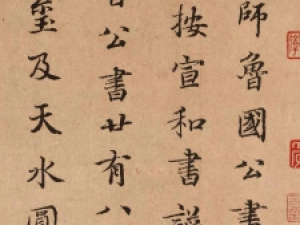 師魯國公書
按宣和書説
公書廿有八
璽及天水圓